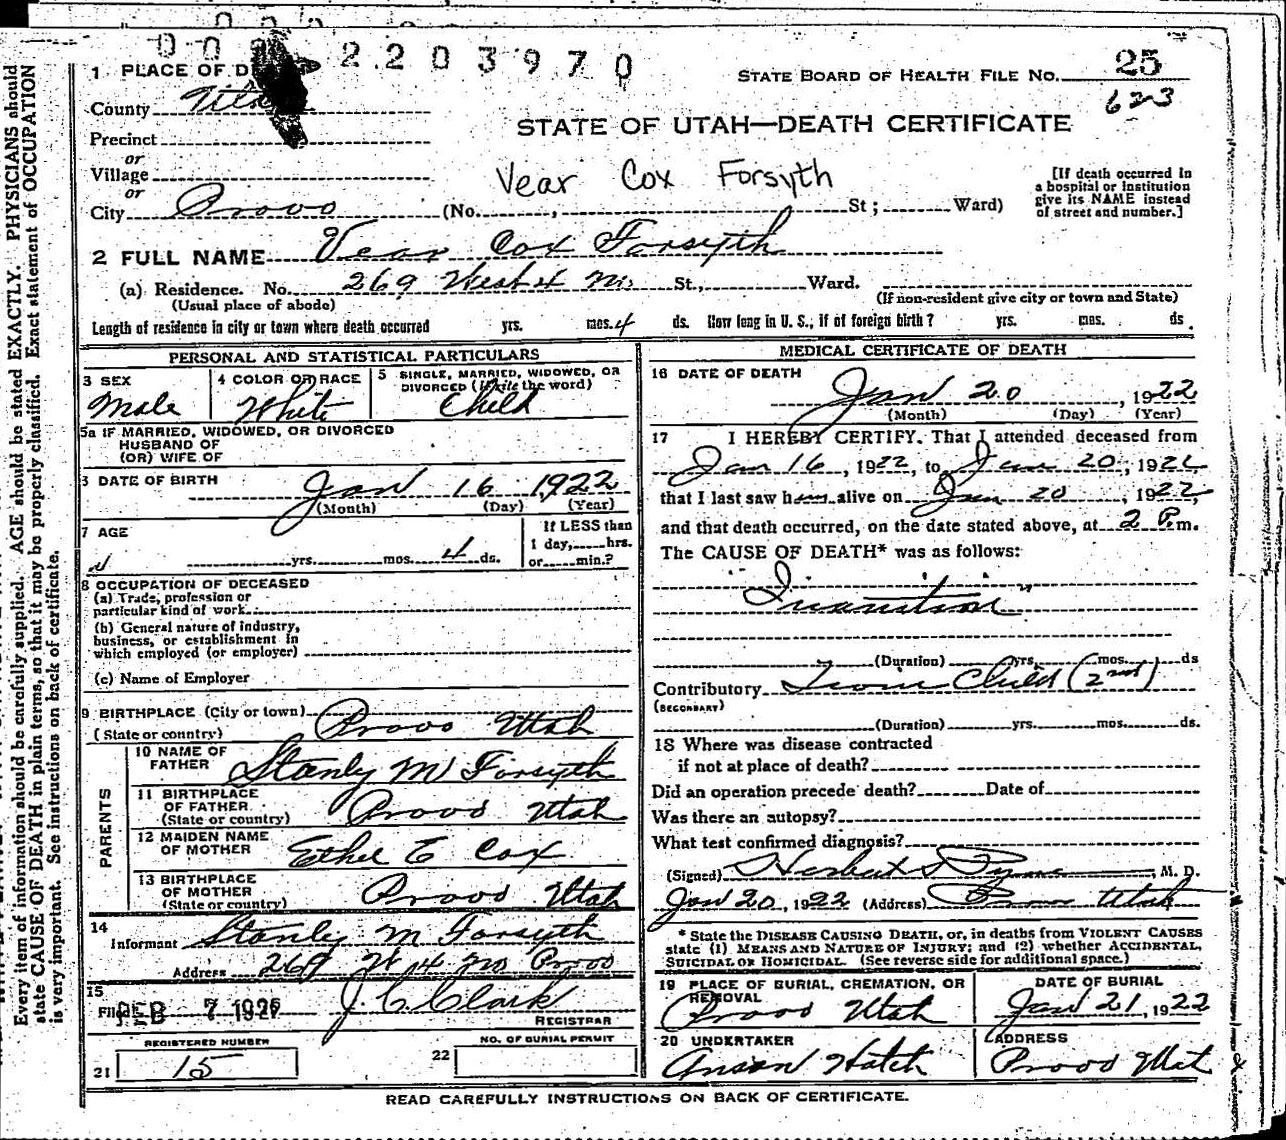 2203970
1 PLACE OF
STATE BOARD OF HEALTH FILE No. 25
County Utah
623
STATE OF UTAH—DEATH CERTIFICATE
Precinct
or
Village
Vear Cox Forsyth
[If death occurred in
a hospital or institution
give its NAME instead
of street and number.]
or
City Provo (No. , St; Ward)
2 FULL NAME Vear Cox Forsyth
(a) Residence. No. 269 West 4 No. St., Ward.
(Usual place of abode) (If non-resident give city or town and State)
Length of residence in city or town where death occurred yrs. mos. 4 ds. How long in U. S., if of foreign birth? yrs. mos. ds.
PERSONAL AND STATISTICAL PARTICULARS
3 SEX Male
4 COLOR OR RACE White
5 SINGLE, MARRIED, WIDOWED, OR
DIVORCED (Write the word)
Child
5a IF MARRIED, WIDOWED, OR DIVORCED
HUSBAND OF
(OR) WIFE OF
DATE OF BIRTH Jan 16 1922
(Month) (Day) (Year)
7 AGE
yrs. mos. 4 ds.
If LESS than
1 day, hrs.
or min.?
8 OCCUPATION OF DECEASED
(a) Trade, profession or
particular kind of work
(b) General nature of industry,
business, or establishment in
which employed (or employer)
(c) Name of Employer
9 BIRTHPLACE (City or town)
(State or country) Provo Utah
PARENTS
10 NAME OF
FATHER Stanly M Forsyth
11 BIRTHPLACE
OF FATHER
(State or country) Provo Utah
12 MAIDEN NAME
OF MOTHER Ethel E Cox
13 BIRTHPLACE
OF MOTHER
(State or country) Provo Utah
14
Informant Stanly M Forsyth
Address 269 W 4 No Provo
15
Filed FEB 7 1922 J. C. Clark
REGISTRAR
REGISTERED NUMBER
21 15
NO. OF BURIAL PERMIT
22
MEDICAL CERTIFICATE OF DEATH
16 DATE OF DEATH
Jan 20, 1922
(Month) (Day) (Year)
17 I HEREBY CERTIFY, That I attended deceased from
Jan 16, 1922, to Jan 20, 1922
that I last saw him alive on Jan 20, 1922,
and that death occurred, on the date stated above, at 2 P.m.
The CAUSE OF DEATH* was as follows:
"Inanition"
(Duration) yrs. mos. ds
Contributory Twin Child (2nd)
(SECONDARY)
(Duration) yrs. mos. ds.
18 Where was disease contracted
if not at place of death?
Did an operation precede death? Date of
Was there an autopsy?
What test confirmed diagnosis?
(Signed) Herbert S Pyne, M. D.
Jan 20, 1922 (Address) Provo Utah
* State the DISEASE CAUSING DEATH, or, in deaths from VIOLENT CAUSES
state (1) MEANS AND NATURE OF INJURY; and (2) whether ACCIDENTAL,
SUICIDAL OR HOMICIDAL. (See reverse side for additional space.)
19 PLACE OF BURIAL, CREMATION, OR
REMOVAL
Provo Utah
DATE OF BURIAL
Jan 21, 1922
20 UNDERTAKER
Anson Hatch
ADDRESS
Provo Utah
READ CAREFULLY INSTRUCTIONS ON BACK OF CERTIFICATE.
Every item of information should be carefully supplied. AGE should be stated EXACTLY. PHYSICIANS should
state CAUSE OF DEATH in plain terms, so that it may be properly classified. Exact statement of OCCUPATION
is very important. See instructions on back of certificate.